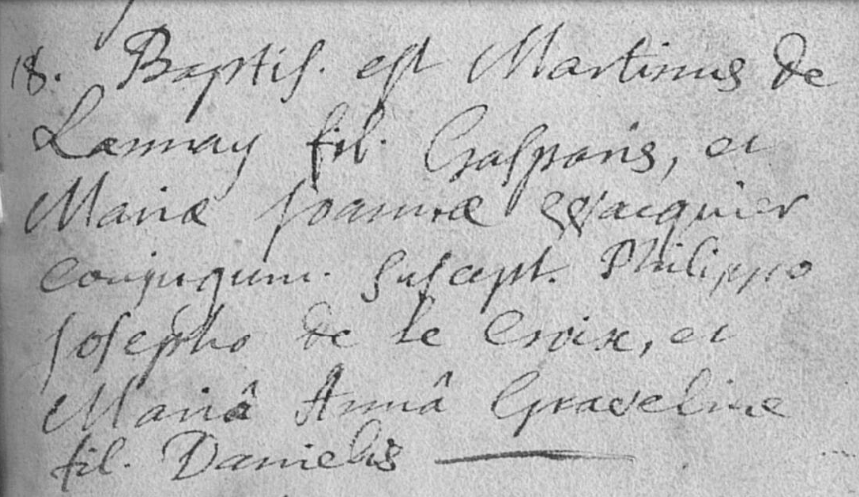 18. Baptis. est Martinus de
Lannay fil. Gasparis, et
Mariæ Joannæ Wacquier
conjugum. suscept. Philippo
Josepho de le Croix, et
Mariâ Annâ Graveline
fil. Danielis